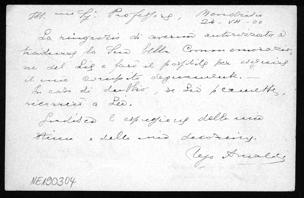 Ill. mo Sig. Professore,
24 - VII - 00
La ringrazio di avermi autorizzato a
tradurre la Sua bella Commemorazio-
ne del e farò il possibile per eseguire
il mio compito degnamente.
In caso di dubbio, se Lei permette,
ricorrerò a Lei.
Gradisca le espressioni della mia
stima e della mia devozione.
Ugo
NE190304